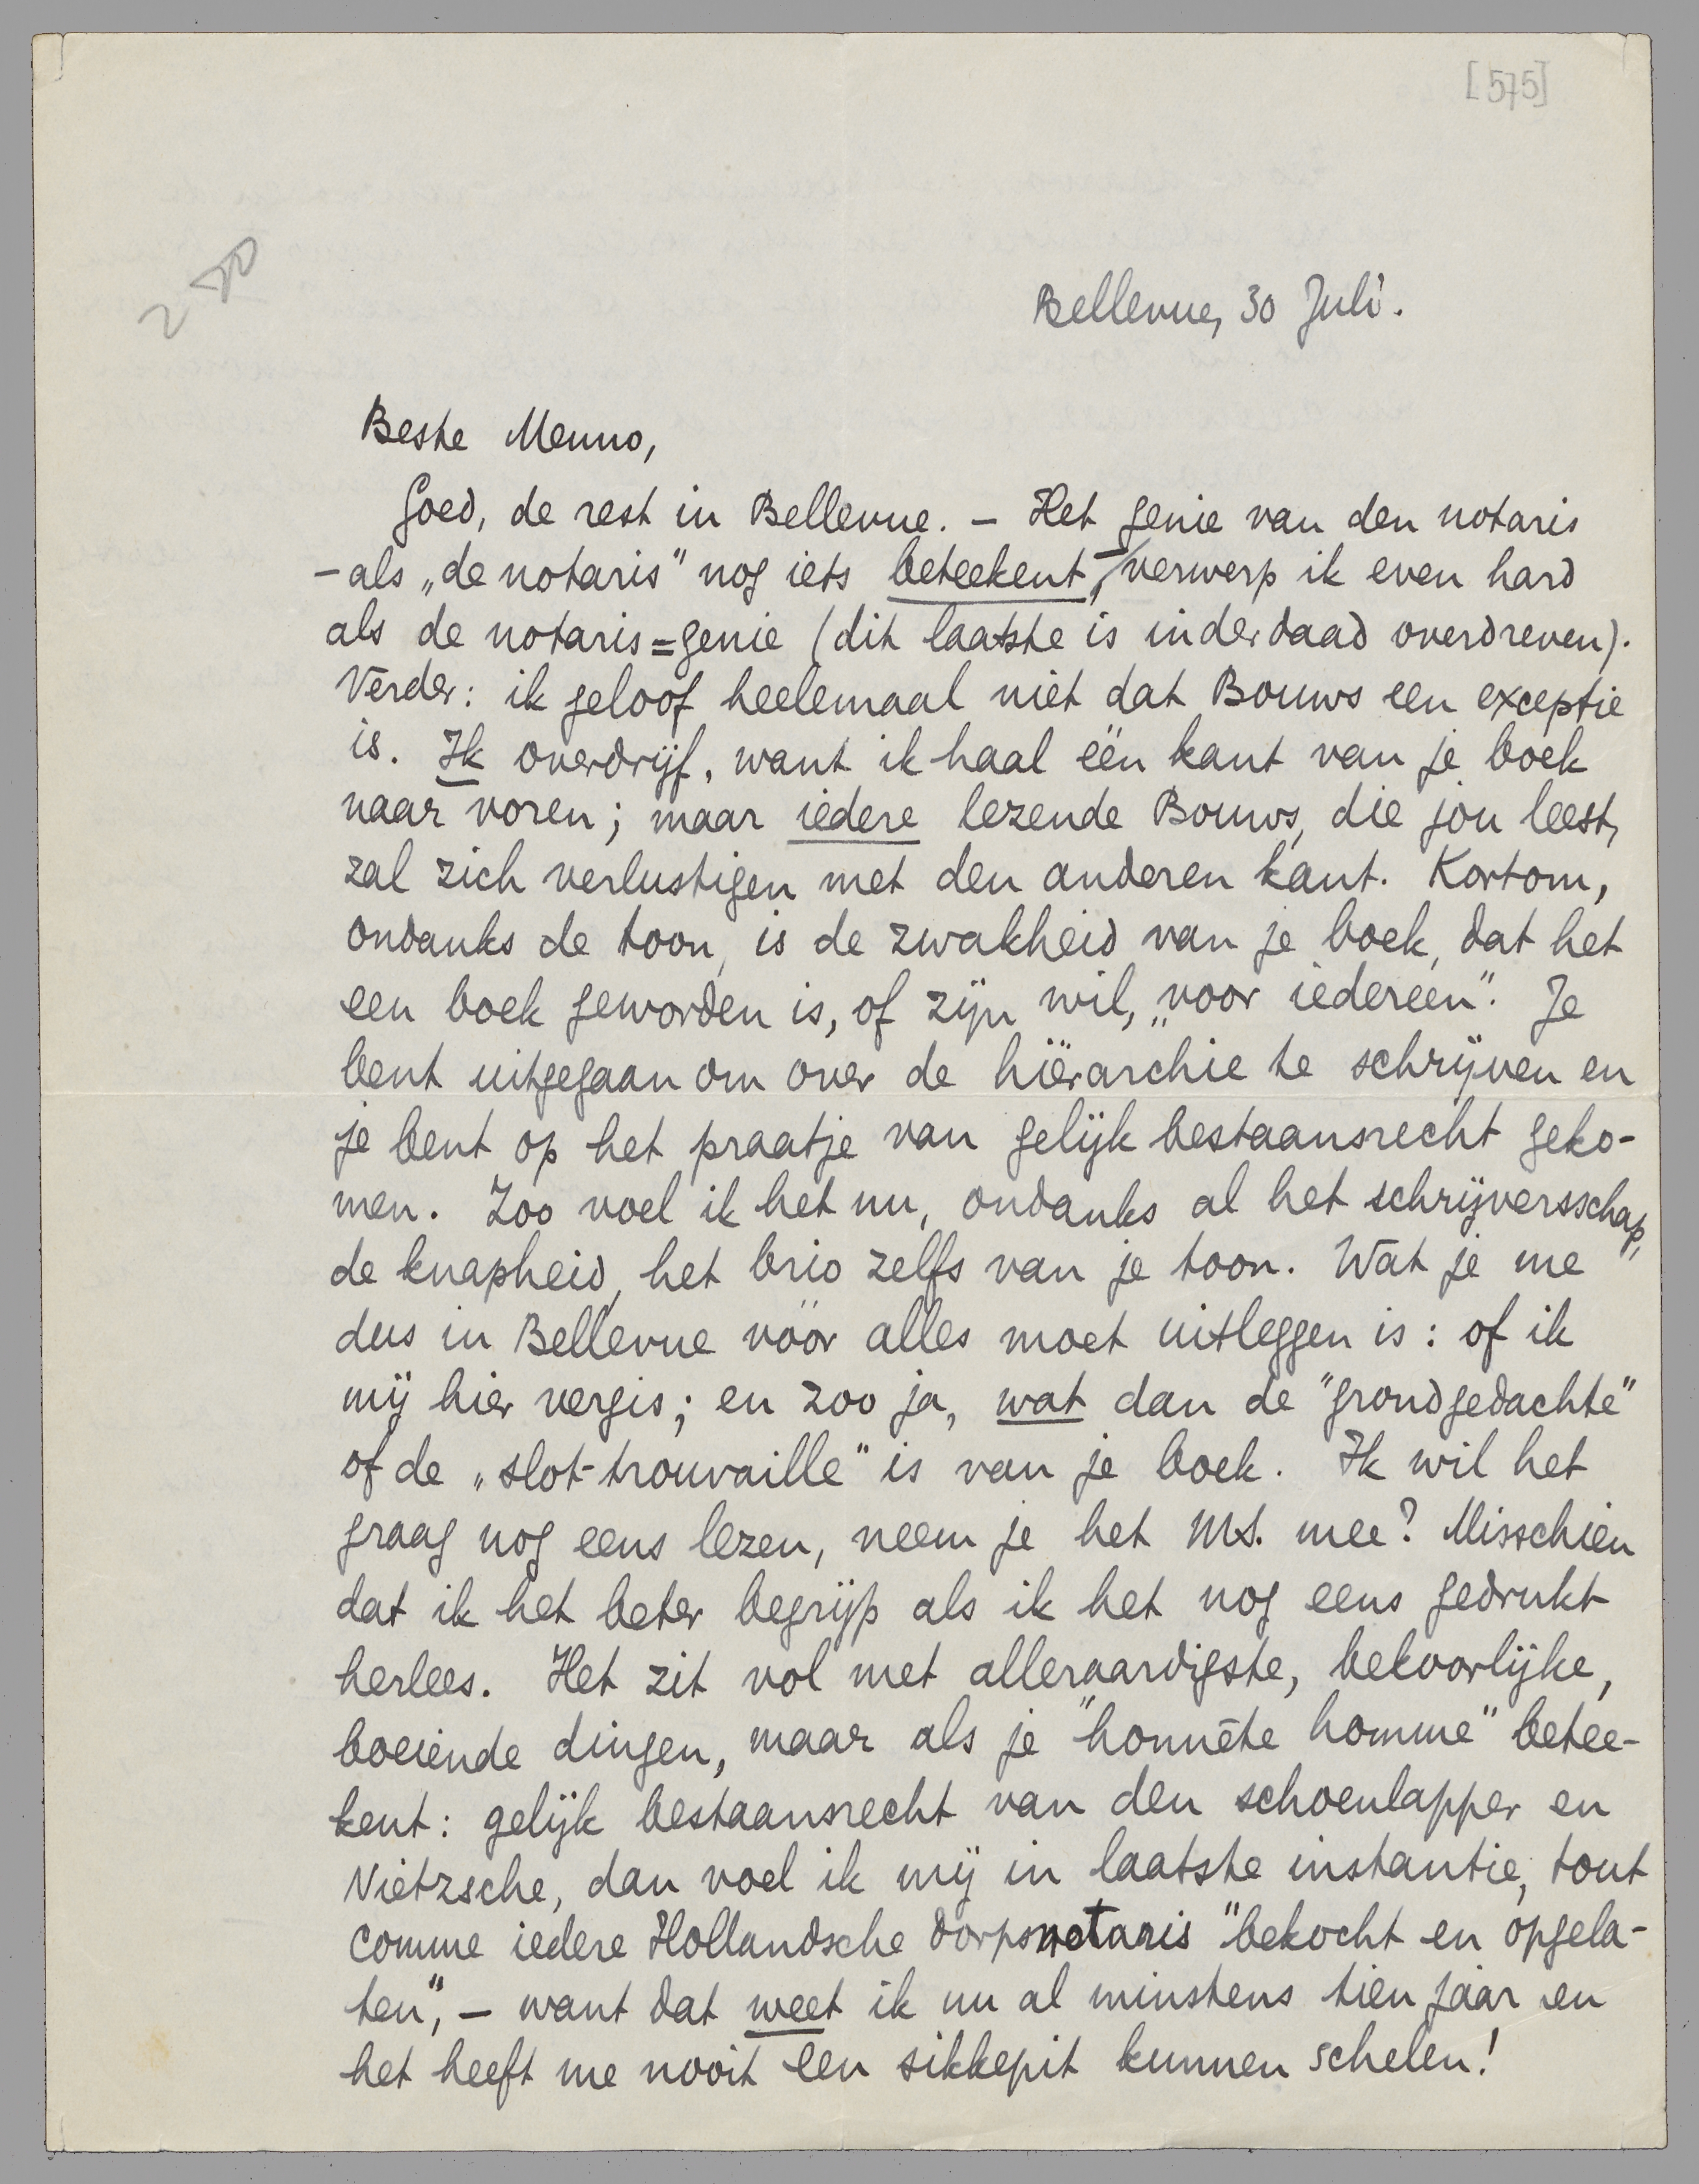 [575]
Bellevue, 30 Juli.
Beste Menno,
Goed, de rest in Bellevue. – Het genie van den notaris
– als „de notaris” nog iets beteekent, – verwerp ik even hard
als de notaris=genie (dit laatste is inderdaad overdreven).
Vérder: ik geloof heelemaal niet dat Bouws een exceptie
is. Ik overdrijf, want ik haal één kant van je boek
naar voren; maar iedere lezende Bouws, die jou leest,
zal zich verlustigen met den anderen kant. Kortom,
ondanks de toon, is de zwakheid van je boek, dat het
een boek geworden is, of zijn wil, „voor iedereen”. Je
bent uitgegaan om over de hiërarchie te schrijven en
je bent op het praatje van gelijk bestaansrecht geko-
men. Zoo voel ik het nu, ondanks al het schrijversschap,
de knapheid, het brio zelfs van je toon. Wat je me
dus in Bellevue vóór alles moet uitleggen is: of ik
mij hier vergis; en zoo ja, wat dan de "grondgedachte"
of de „slot-trouvaille” is van je boek. Ik wil het
graag nog eens lezen, neem je het MS. mee? Misschien
dat ik het beter begrijp als ik het nog eens gedrukt
herlees. Het zit vol met alleraardigste, bekoorlijke,
boeiende dingen, maar als je "honnête homme" betee-
kent: gelijk bestaansrecht van den schoenlapper en
Nietzsche, dan voel ik mij in laatste instantie, tout
comme iedere Hollandsche dorpsnotaris "bekocht en opgela-
ten", – want dat weet ik nu al minstens tien jaar en
het heeft me nooit een sikkepit kunnen schelen!